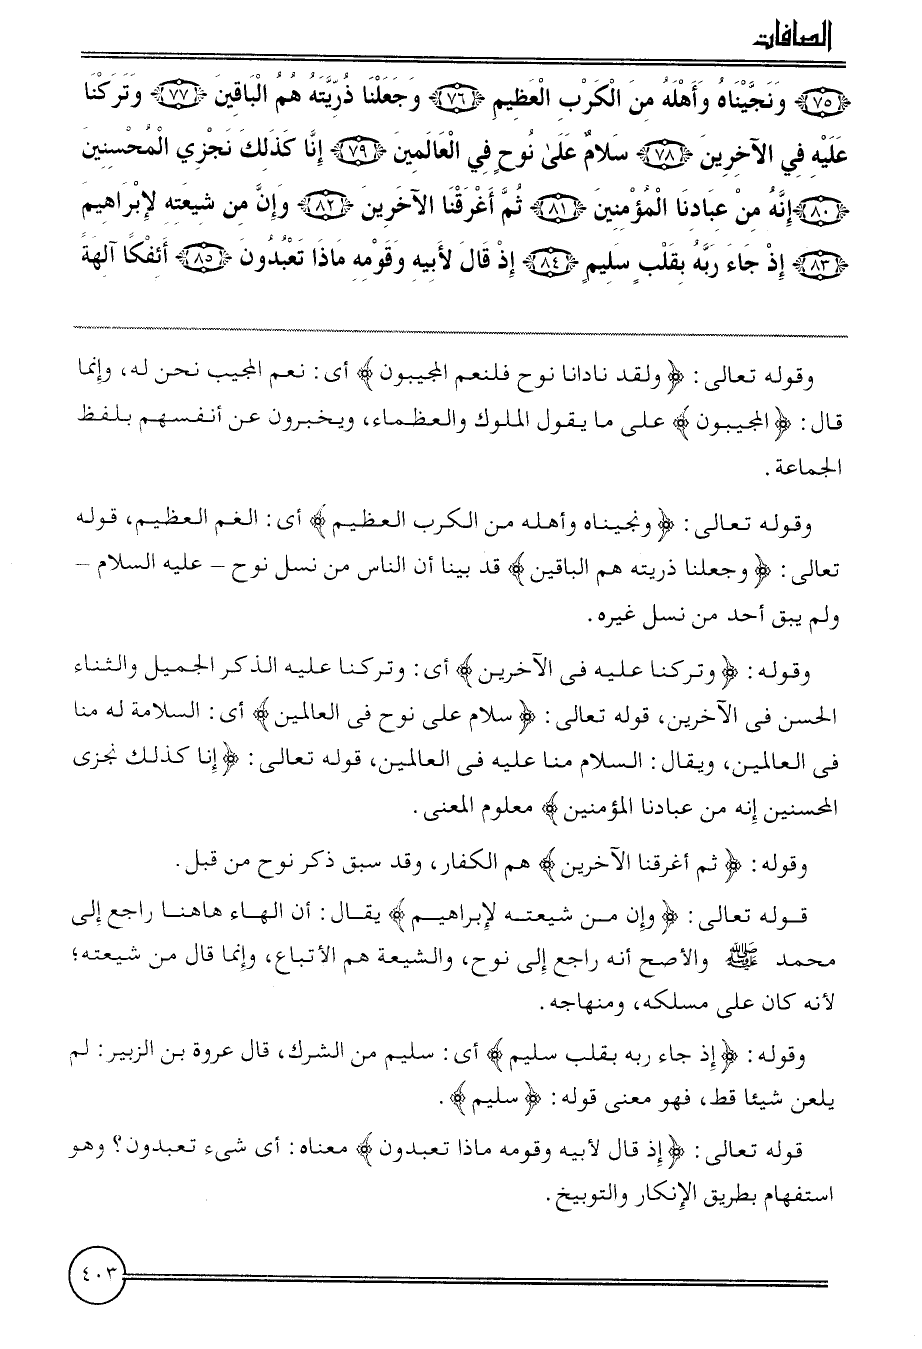 الصافات
﴿٧٥﴾ وَنَجَّيْنَاهُ وَأَهْلَهُ مِنَ الْكَرْبِ الْعَظِيمِ ﴿٧٦﴾ وَجَعَلْنَا ذُرِّيَّتَهُ هُمُ الْبَاقِينَ ﴿٧٧﴾ وَتَرَكْنَا
عَلَيْهِ فِي الآخِرِينَ ﴿٧٨﴾ سَلامٌ عَلَىٰ نُوحٍ فِي الْعَالَمِينَ ﴿٧٩﴾ إِنَّا كَذَلِكَ نَجْزِي الْمُحْسِنِينَ
﴿٨٠﴾ إِنَّهُ مِنْ عِبَادِنَا الْمُؤْمِنِينَ ﴿٨١﴾ ثُمَّ أَغْرَقْنَا الآخَرِينَ ﴿٨٢﴾ وَإِنَّ مِن شِيعَتِهِ لإِبْرَاهِيمَ
﴿٨٣﴾ إِذْ جَاءَ رَبَّهُ بِقَلْبٍ سَلِيمٍ ﴿٨٤﴾ إِذْ قَالَ لأَبِيهِ وَقَوْمِهِ مَاذَا تَعْبُدُونَ ﴿٨٥﴾ أَئِفْكًا آلِهَةً
وقوله تعالى: ﴿ولقد نادانا نوح فلنعم المجيبون﴾ أى: نعم المجيب نحن له، وإنما
قال: ﴿المجيبون﴾ على ما يقول الملوك والعظماء، ويخبرون عن أنفسهم بلفظ
الجماعة.
وقوله تعالى: ﴿ونجيناه وأهله من الكرب العظيم﴾ أى: الغم العظيم، قوله
تعالى: ﴿وجعلنا ذريته هم الباقين﴾ قد بينا أن الناس من نسل نوح – عليه السلام –
ولم يبق أحد من نسل غيره.
وقوله: ﴿وتركنا عليه فى الآخرين﴾ أى: وتركنا عليه الذكر الجميل والثناء
الحسن فى الآخرين، قوله تعالى: ﴿سلام على نوح فى العالمين﴾ أى: السلامة له منا
فى العالمين، ويقال: السلام منا عليه فى العالمين، قوله تعالى: ﴿إنا كذلك نجزى
المحسنين إنه من عبادنا المؤمنين﴾ معلوم المعنى.
وقوله: ﴿ثم أغرقنا الآخرين﴾ هم الكفار، وقد سبق ذكر نوح من قبل.
قوله تعالى: ﴿وإن من شيعته لإبراهيم﴾ يقال: أن الهاء هاهنا راجع إلى
محمد ﷺ والأصح أنه راجع إلى نوح، والشيعة هم الأتباع، وإنما قال من شيعته؛
لأنه كان على مسلكه، ومنهاجه.
وقوله: ﴿إذ جاء ربه بقلب سليم﴾ أى: سليم من الشرك، قال عروة بن الزبير: لم
يلعن شيئا قط، فهو معنى قوله: ﴿سليم﴾.
قوله تعالى: ﴿إذ قال لأبيه وقومه ماذا تعبدون﴾ معناه: أى شىء تعبدون؟ وهو
استفهام بطريق الإنكار والتوبيخ.
٤٠٣